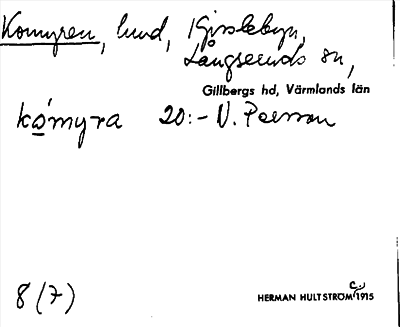 Komyren, lund, Kjrslebyn,
Långseruds sn,
Gillbergs hd, Värmlands län
kómyra 20:- N. Persson
8 (7)
HERMAN HULTSTRÖM c. 1915